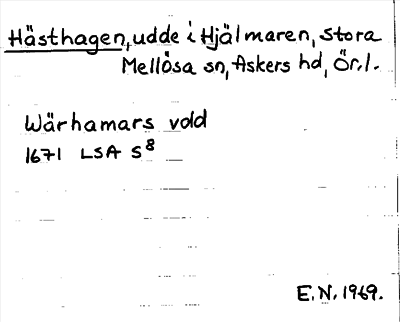 Hästhagen, udde i Hjälmaren, Stora
Mellösa sn, Askers hd, Ör.l.
Wärhamars vold
1671 LSA S8
E.N. 1969.